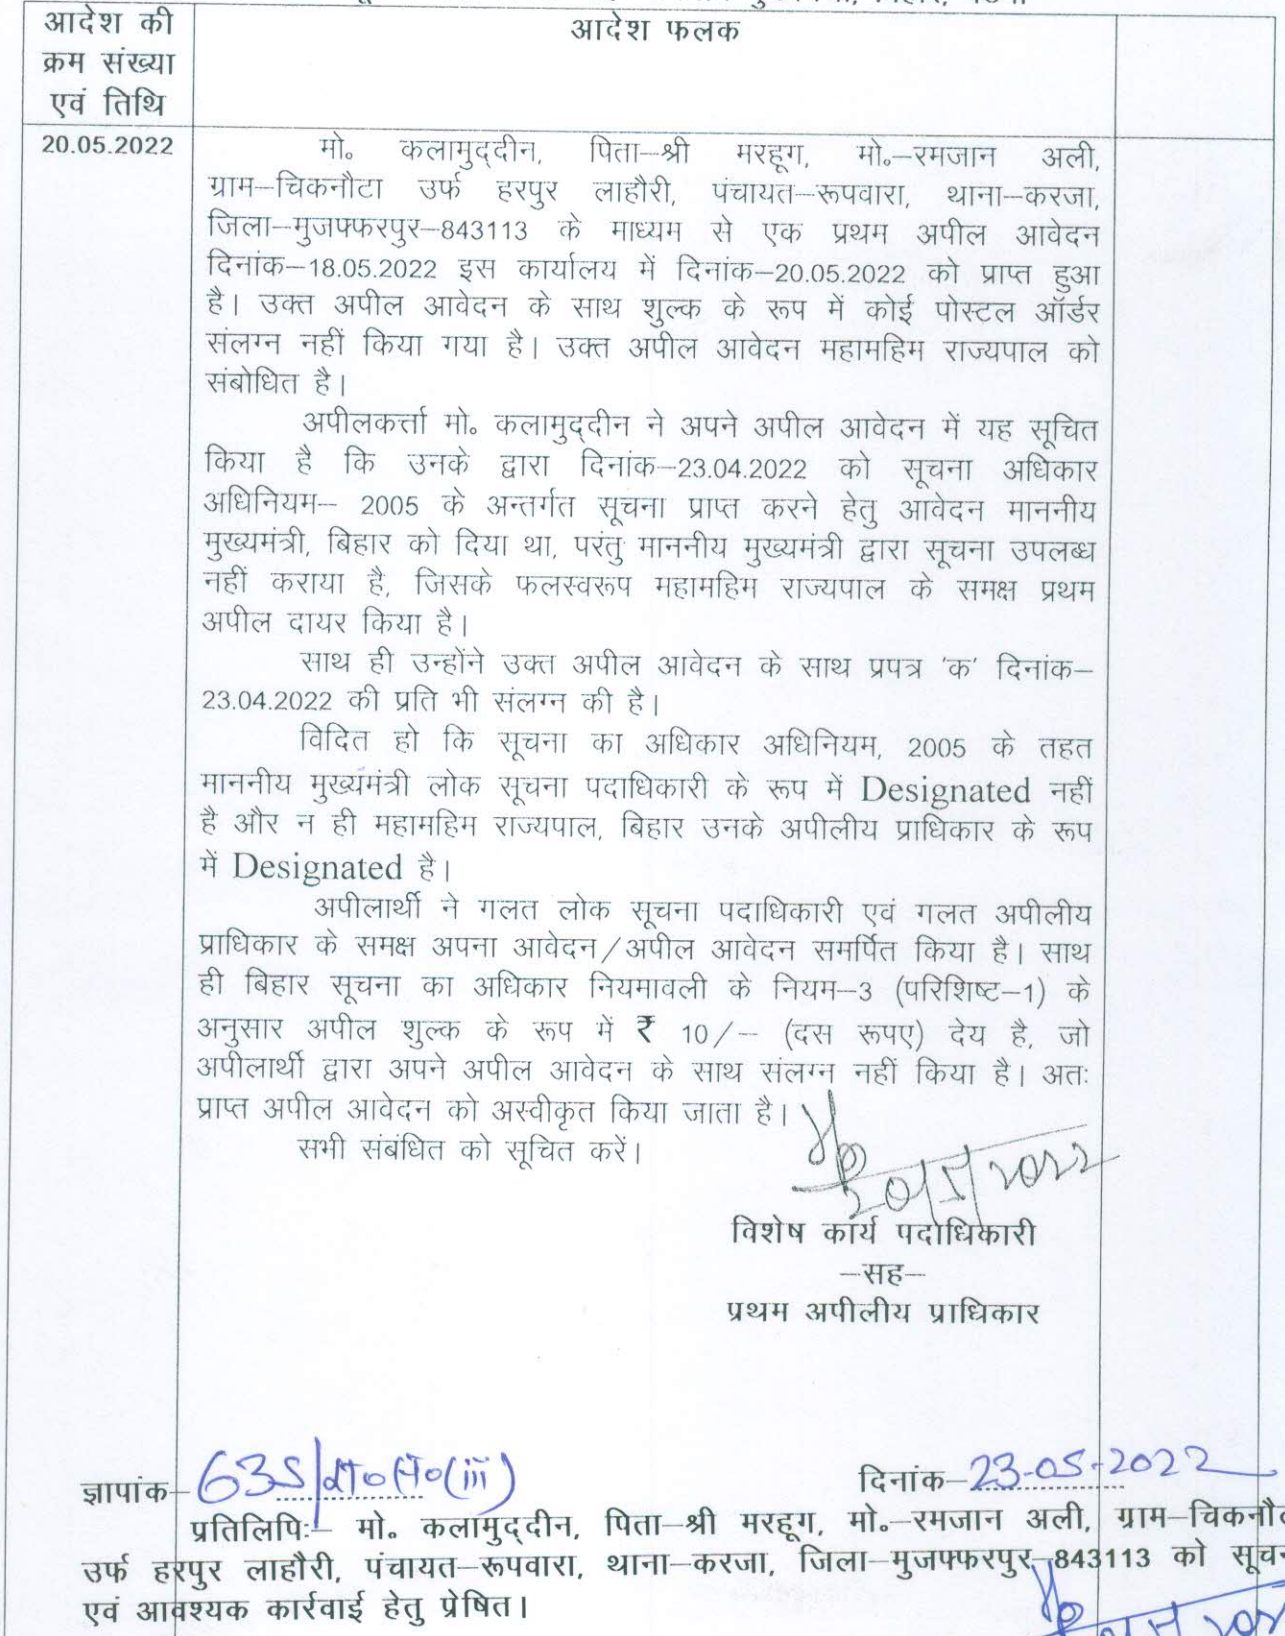 आदेश की
क्रम संख्या
एवं तिथि
आदेश फलक
20.05.2022
मो० कलामुद्दीन, पिता–श्री मरहूग, मो०–रमजान अली,
ग्राम–चिकनौटा उर्फ हरपुर लाहौरी, पंचायत–रूपवारा, थाना–करजा,
जिला–मुजफ्फरपुर–843113 के माध्यम से एक प्रथम अपील आवेदन
दिनांक–18.05.2022 इस कार्यालय में दिनांक–20.05.2022 को प्राप्त हुआ
है। उक्त अपील आवेदन के साथ शुल्क के रूप में कोई पोस्टल ऑर्डर
संलग्न नहीं किया गया है। उक्त अपील आवेदन महामहिम राज्यपाल को
संबोधित है।
अपीलकर्त्ता मो० कलामुद्दीन ने अपने अपील आवेदन में यह सूचित
किया है कि उनके द्वारा दिनांक–23.04.2022 को सूचना अधिकार
अधिनियम– 2005 के अन्तर्गत सूचना प्राप्त करने हेतु आवेदन माननीय
मुख्यमंत्री, बिहार को दिया था, परंतु माननीय मुख्यमंत्री द्वारा सूचना उपलब्ध
नहीं कराया है, जिसके फलस्वरूप महामहिम राज्यपाल के समक्ष प्रथम
अपील दायर किया है।
साथ ही उन्होंने उक्त अपील आवेदन के साथ प्रपत्र 'क' दिनांक–
23.04.2022 की प्रति भी संलग्न की है।
विदित हो कि सूचना का अधिकार अधिनियम, 2005 के तहत
माननीय मुख्यमंत्री लोक सूचना पदाधिकारी के रूप में Designated नहीं
है और न ही महामहिम राज्यपाल, बिहार उनके अपीलीय प्राधिकार के रूप
में Designated है।
अपीलार्थी ने गलत लोक सूचना पदाधिकारी एवं गलत अपीलीय
प्राधिकार के समक्ष अपना आवेदन/अपील आवेदन समर्पित किया है। साथ
ही बिहार सूचना का अधिकार नियमावली के नियम–3 (परिशिष्ट–1) के
अनुसार अपील शुल्क के रूप में ₹ 10/– (दस रूपए) देय है, जो
अपीलार्थी द्वारा अपने अपील आवेदन के साथ संलग्न नहीं किया है। अतः
प्राप्त अपील आवेदन को अस्वीकृत किया जाता है।
सभी संबंधित को सूचित करें।
20/5/2022
विशेष कार्य पदाधिकारी
–सह–
प्रथम अपीलीय प्राधिकार
ज्ञापांक– 635/लो०सू०(iii) दिनांक–23-05-2022
प्रतिलिपिः– मो० कलामुद्दीन, पिता–श्री मरहूग, मो०–रमजान अली, ग्राम–चिकनौट
उर्फ हरपुर लाहौरी, पंचायत–रूपवारा, थाना–करजा, जिला–मुजफ्फरपुर–843113 को सूचन
एवं आवश्यक कार्रवाई हेतु प्रेषित।